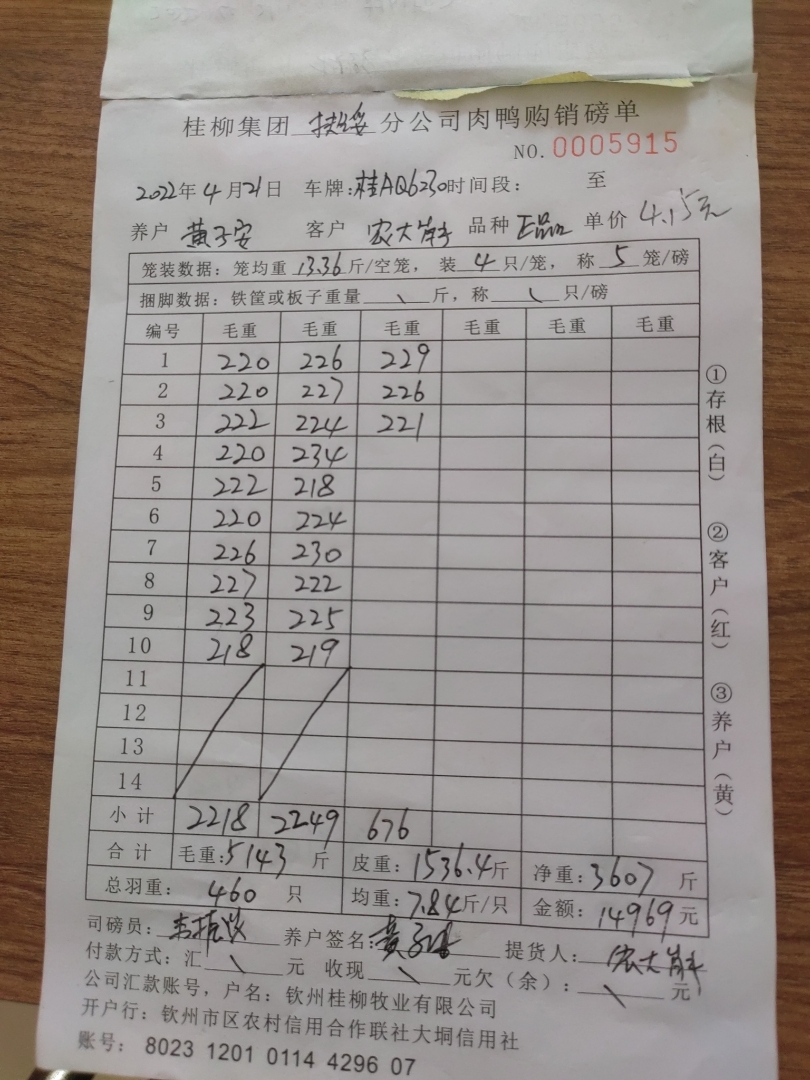 桂柳集团 扶绥 分公司肉鸭购销磅单
NO. 0005915
2022年4月21日 车牌:桂AQ6230 时间段: 至
养户 黄子安 客户 农大 品种 正品 单价 4.15元
笼装数据:笼均重 13.36 斤/空笼, 装 4 只/笼, 称 5 笼/磅
捆脚数据:铁筐或板子重量 \ 斤,称 \ 只/磅
编号 毛重 毛重 毛重 毛重 毛重 毛重
1 220 226 229
2 220 227 226
3 222 224 221
4 220 234
5 222 218
6 220 224
7 226 230
8 227 222
9 223 225
10 218 219
11
12
13
14
小计 2218 2249 676
合计 毛重:5143 斤 皮重:1536.4斤 净重:3607 斤
总羽重: 460 只 均重:7.84斤/只 金额:14969元
司磅员: 养户签名:黄子 提货人:农大
付款方式:汇 \ 元 收现 \ 元欠(余): \ 元
公司汇款账号,户名:钦州桂柳牧业有限公司
开户行:钦州市区农村信用合作联社大垌信用社
账号: 8023 1201 0114 4296 07
①存根(白)
②客户(红)
③养户(黄)